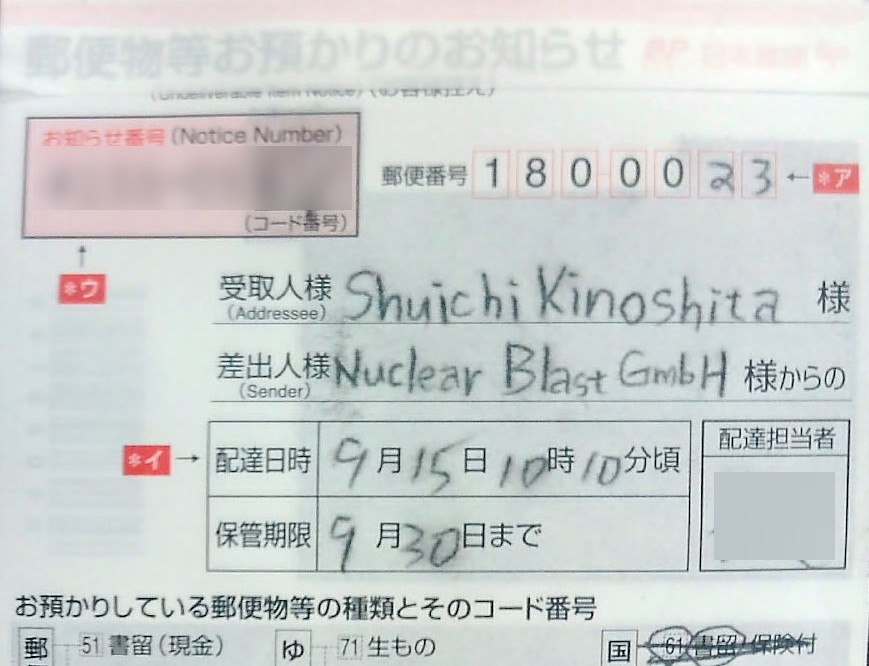 郵便物等お預かりのお知らせ
(Undeliverable Item Notice) (お客様控え)
お知らせ番号 (Notice Number)
郵便番号 1 8 0 0 0 2 3 ← *ア
(コード番号)
↑
*ウ
受取人様 Shuichi Kinoshita 様
(Addressee)
差出人様 Nuclear Blast GmbH 様からの
(Sender)
配達担当者
*イ → 配達日時 9月15日10時10分頃
保管期限 9月30日まで
お預かりしている郵便物等の種類とそのコード番号
郵 51 書留(現金) ゆ 71 生もの 国 61 書留/保険付